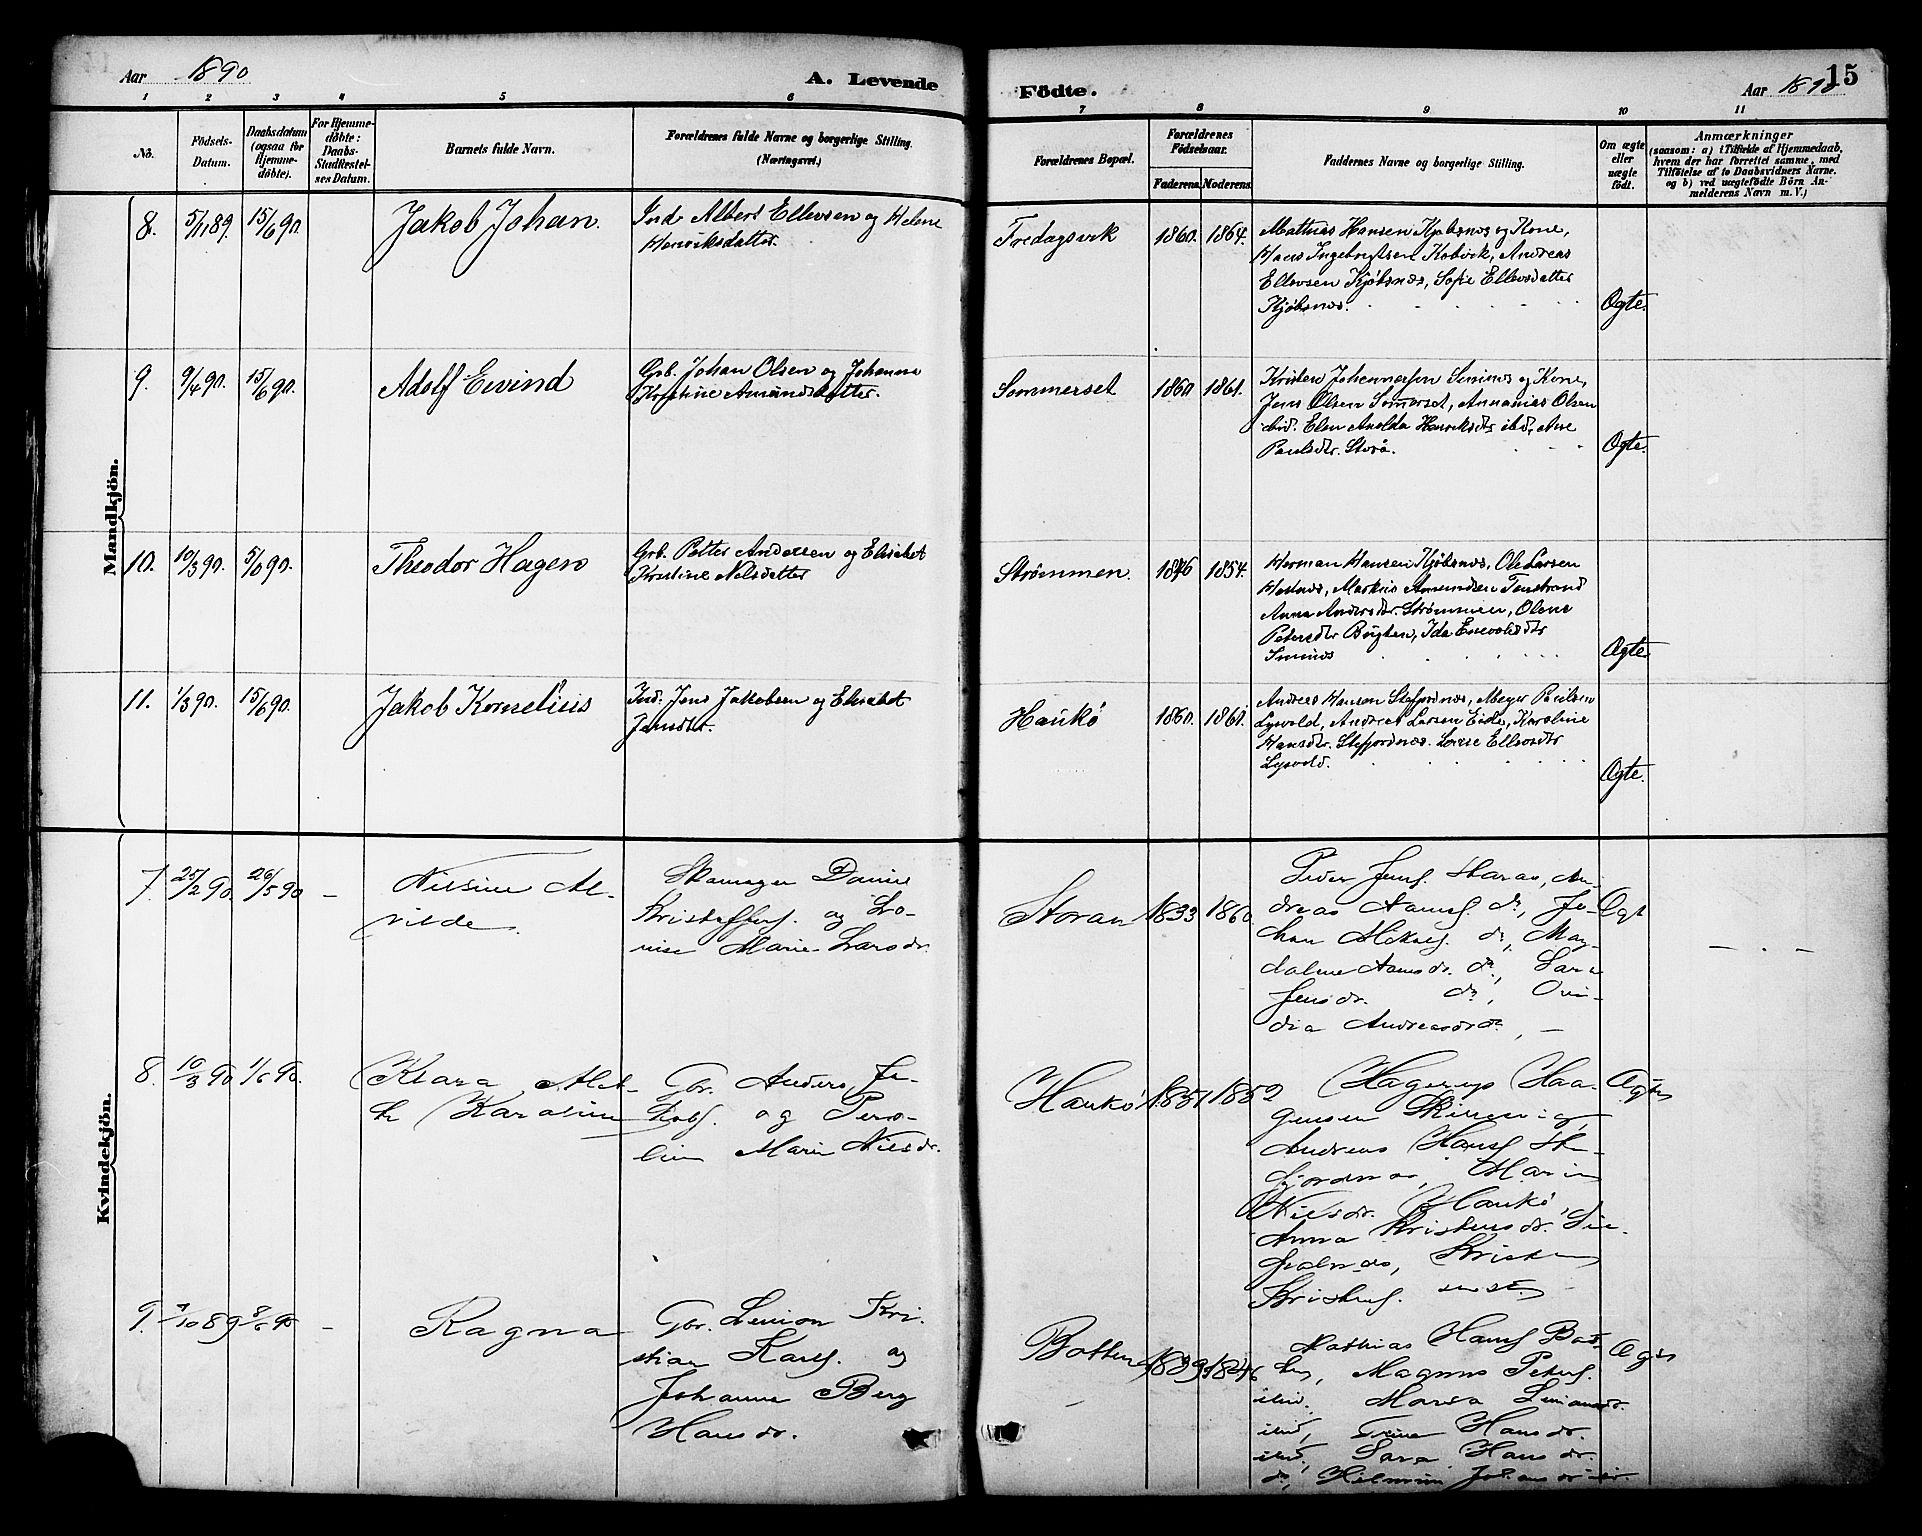 Aar 1890
A. Levende
Födte.
Aar 1890
15
1 2 3 4 5 6 7 8 9 10 11
No.
Födsels-
Datum.
Daabsdatum
(ogsaa for
Hjemme-
döbte).
For Hjemme-
döbte:
Daabs-
Stadfæstel-
ses Datum.
Barnets fulde Navn.
Forældrenes fulde Navne og borgerlige Stilling.
(Næringsvei.)
Forældrenes Bopæl.
Forældrenes
Födselsaar.
Faderens. Moderens.
Faddernes Navne og borgerlige Stilling.
Om ægte
eller
uægte
født.
Anmærkninger
(saasom: a) i Tilfælde af Hjemmedaab,
hvem der har forrettet samme, med
Tilföielse af to Daabsvidners Navne,
og b) ved uægtefödte Börn An-
melderens Navn m. V.)
Mandkjön.
8. 5/11 89. 15/6 90. Jakob Johan. Ind. Albert Ellevsen og Helene
Henriksdatter.
Fredagsvik 1860. 1864. Mathias Hansen Kjøbsnes og Kone,
Hans Ingebrigtsen Kobvik, Andreas
Ellevsen Kjøbsnes, Sofie Ellevsdatter
Kjøbsnes. Ægte.
9. 9/4 90. 15/6 90. Adolf Eivind Grb. Johan Olsen og Johanna
Kristine Amundsdatter.
Sommerset 1860 1861. Kristen Johannessen og Kone,
Jens Olsen Somerset, Annanias Olsen
ibid. Elen Henriksdtr ibd, Ane
Paulsdtr. Storø. Ægte.
10. 10/3 90. 5/6 90. Theodor Hagen Grb. Petter Andersen og Elisabet
Kristine Nilsdatter
Strømmen. 1846 1854. Herman Hansen Kjøbsnes, Ole Larsen
Markus Amundsen
Anna Andersdtr. Strømmen, Oline
Petersdtr Bugten, Ida Enevoldsdtr
Ægte.
11. 1/3 90. 15/6 90. Jakob Kornelius Ind. Jens Jakobsen og Elisabet
Jensdtr.
Haukø 1860. 1861. Andreas Hansen Stefjordnes, Meyer Paulsen
Lysvold, Andreas Larsen Eide, Karoline
Hansdtr. Stefjordnes. Lovise Ellevsdtr
Lysvold. Ægte.
Kvindekjön.
7. 25/2 90. 26/5 90 – Nilsine Al-
vilde.
Daniel
Kristoffers. og Lo-
vise Marie Larsdr.
Storaa 1833 1860. Peder Jens. Haraas, An-
dreas do, Jo-
han do, Mag-
dalene do, Sara
Jensdr. do,
Andreasdr do, –
Ægt – . –
8. 10/3 90 1/6 90. Klara
Karoline
Gbr. Anders Ja-
kobs. og
Marie Nilsdr.
Haukø 1851 1852 Hagerup Haa-
gensen
Andreas Hans. Ste-
fjordnes, Marie
Nilsdr. Haukø,
Anna Kristensdr.
Kristen
Kristens.
Ægte
9. 7/10 89 8/6 90 – Ragna Gbr. Simon Kri-
stian Karls. og
Johanna Berg
Hansdr.
Botten 1839 1846 Mathias Hans. Bot-
ten, Magnus Peters.
ibid. Simonsdr.
ibid, Trine Hansdr.
ibid, Sara Hansdr.
do, Johansdr
Ægte